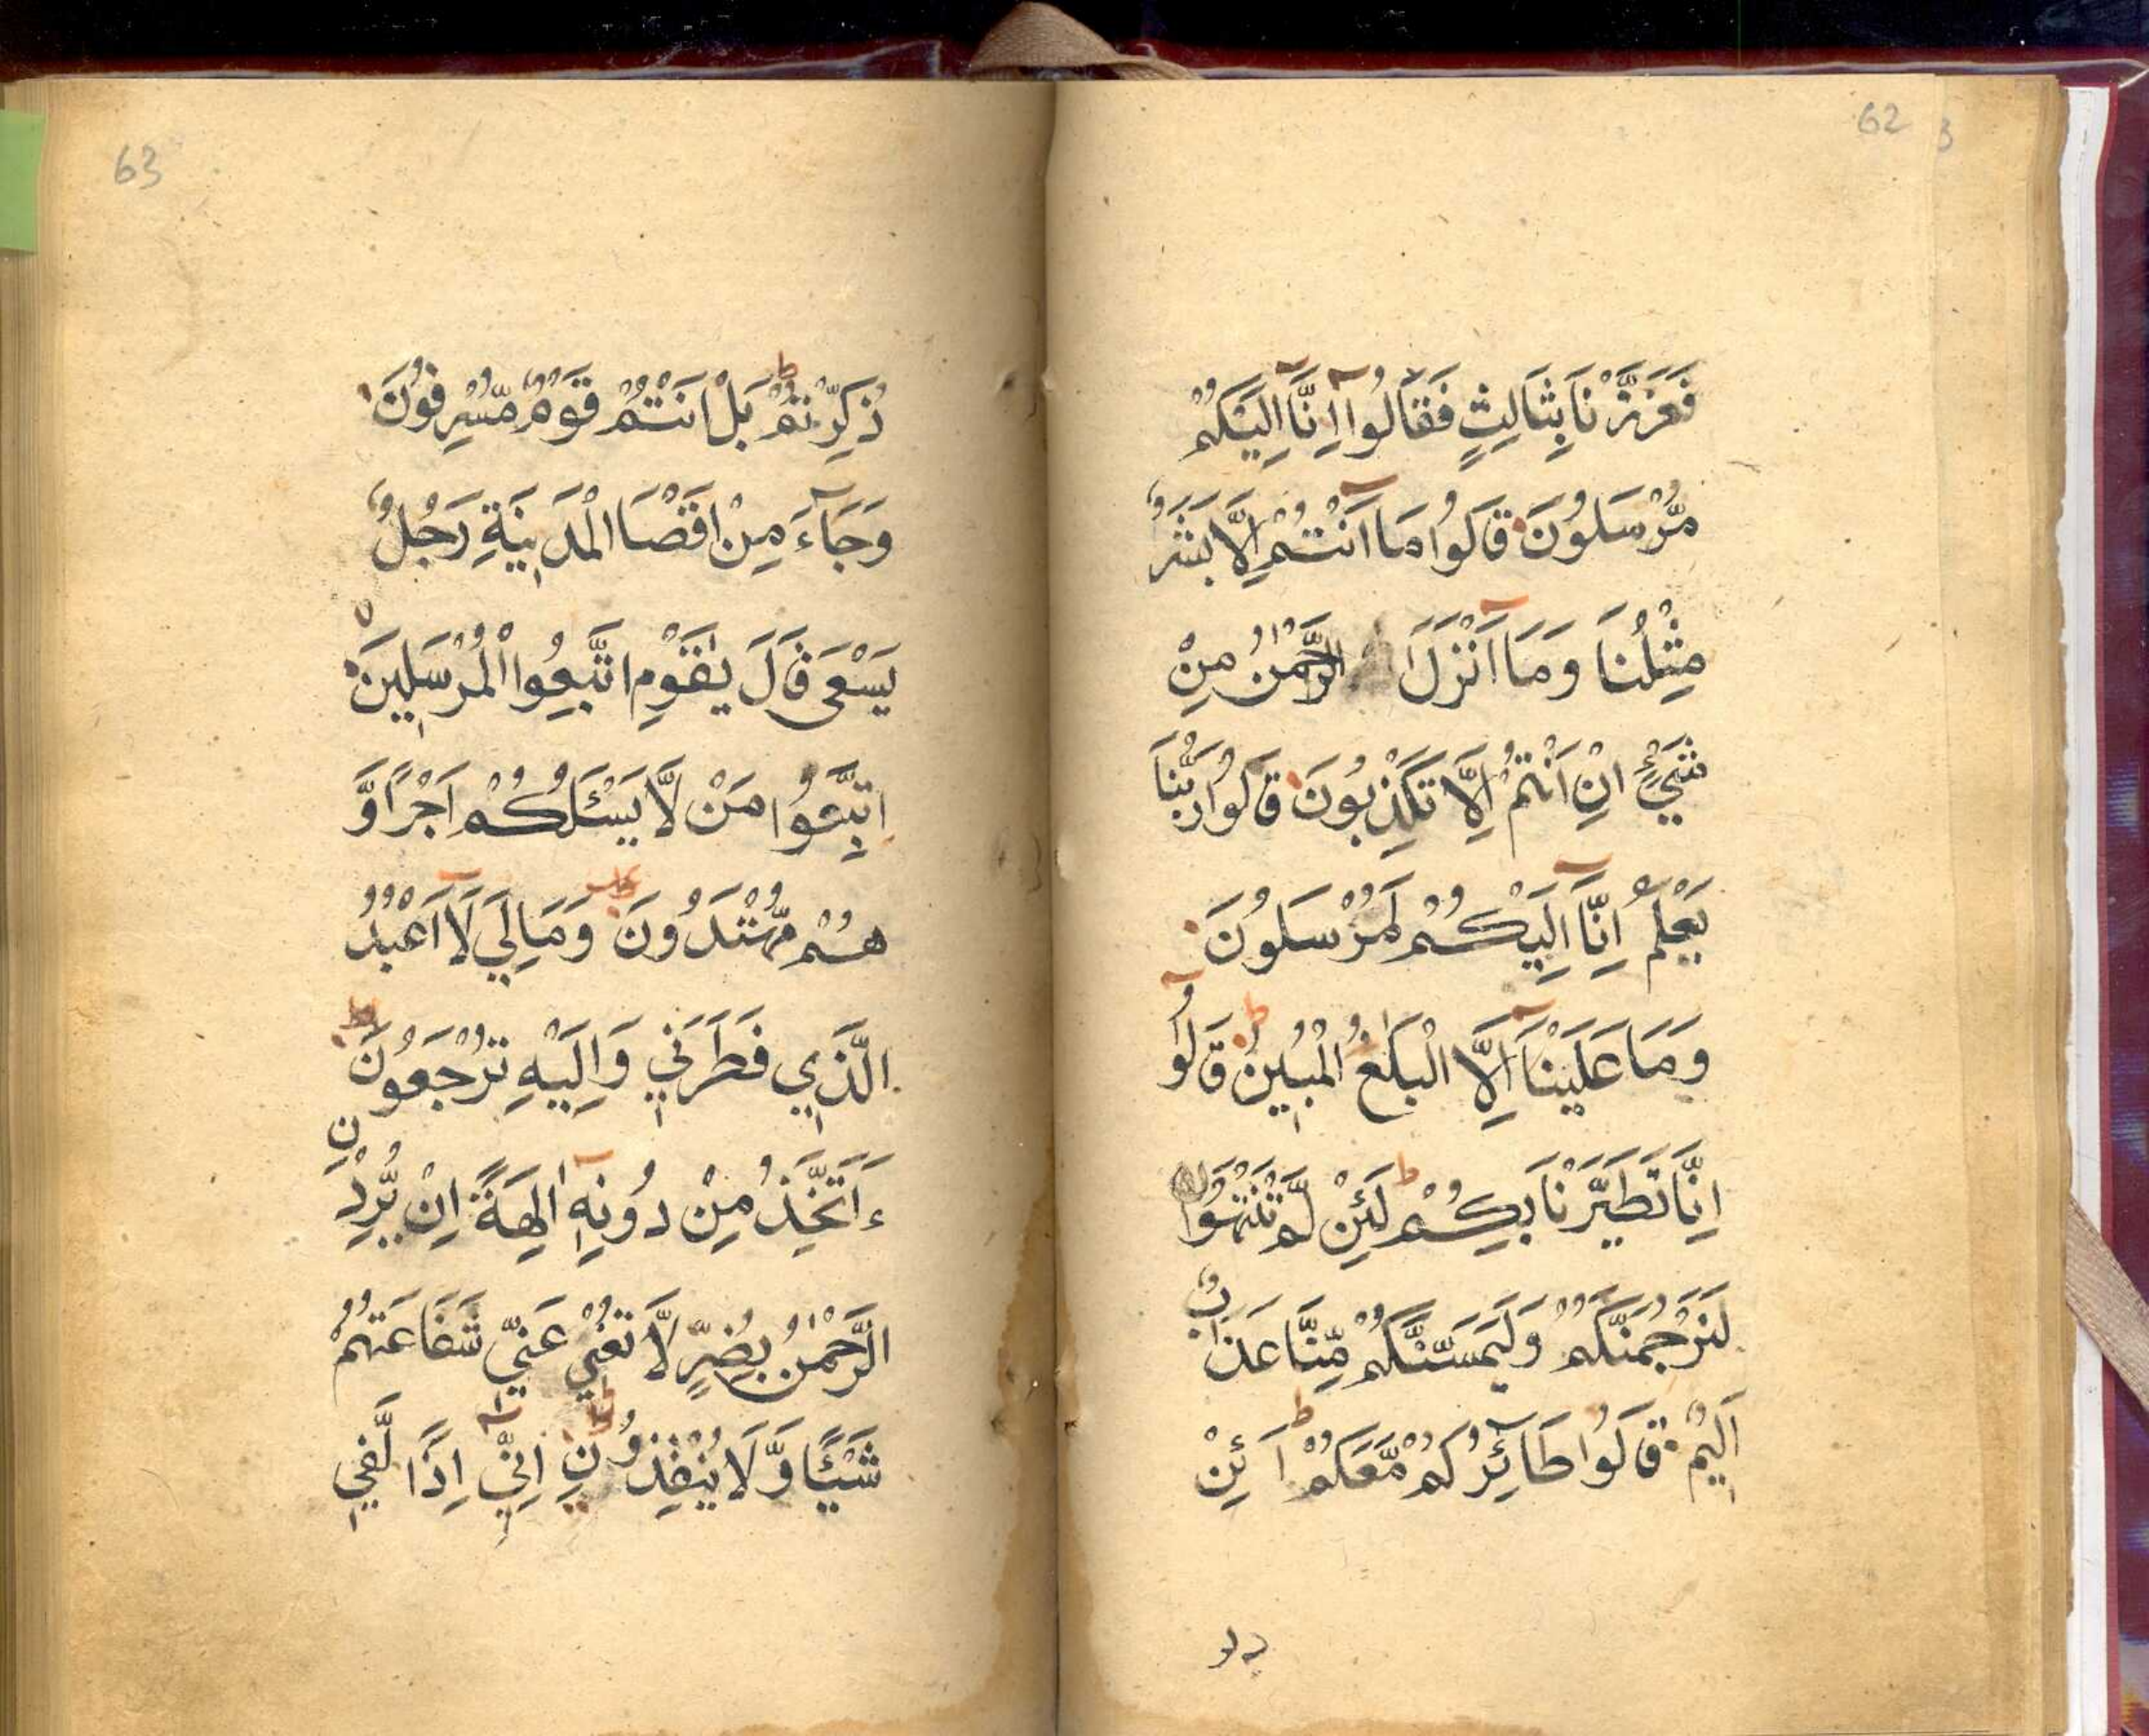 62
فَعَزَّزْنَا بِثَالِثٍ فَقَالُوا اِنَّا اِلَيْكُمْ
مُّرْسَلُونَ قَالُوا مَا اَنْتُمْ اِلَّا بَشَرٌ
مِثْلُنَا وَمَا اَنْزَلَ الرَّحْمٰنُ مِنْ
شَيْءٍ اِنْ اَنْتُمْ اِلَّا تَكْذِبُونَ قَالُوا رَبُّنَا
يَعْلَمُ اِنَّا اِلَيْكُمْ لَمُرْسَلُونَ
وَمَا عَلَيْنَا اِلَّا الْبَلٰغُ الْمُبِينُ قَالُوا
اِنَّا تَطَيَّرْنَا بِكُمْ لَئِنْ لَّمْ تَنْتَهُوا
لَنَرْجُمَنَّكُمْ وَلَيَمَسَّنَّكُمْ مِّنَّا عَذَابٌ
اَلِيمٌ قَالُوا طَآئِرُكُمْ مَّعَكُمْ اَئِنْ
63
ذُكِّرْتُمْ بَلْ اَنْتُمْ قَوْمٌ مُّسْرِفُونَ
وَجَآءَ مِنْ اَقْصَا الْمَدِينَةِ رَجُلٌ
يَسْعَى قَالَ يٰقَوْمِ اتَّبِعُوا الْمُرْسَلِينَ
اتَّبِعُوا مَنْ لَّا يَسْئَلُكُمْ اَجْرًا وَّ
هُمْ مُّهْتَدُونَ وَمَا لِيَ لَا اَعْبُدُ
الَّذِي فَطَرَنِي وَاِلَيْهِ تُرْجَعُونَ
ءَاَتَّخِذُ مِنْ دُونِهٖ اٰلِهَةً اِنْ يُّرِدْنِ
الرَّحْمٰنُ بِضُرٍّ لَّا تُغْنِ عَنِّي شَفَاعَتُهُمْ
شَيْئًا وَّلَا يُنْقِذُونِ اِنِّي اِذًا لَّفِي